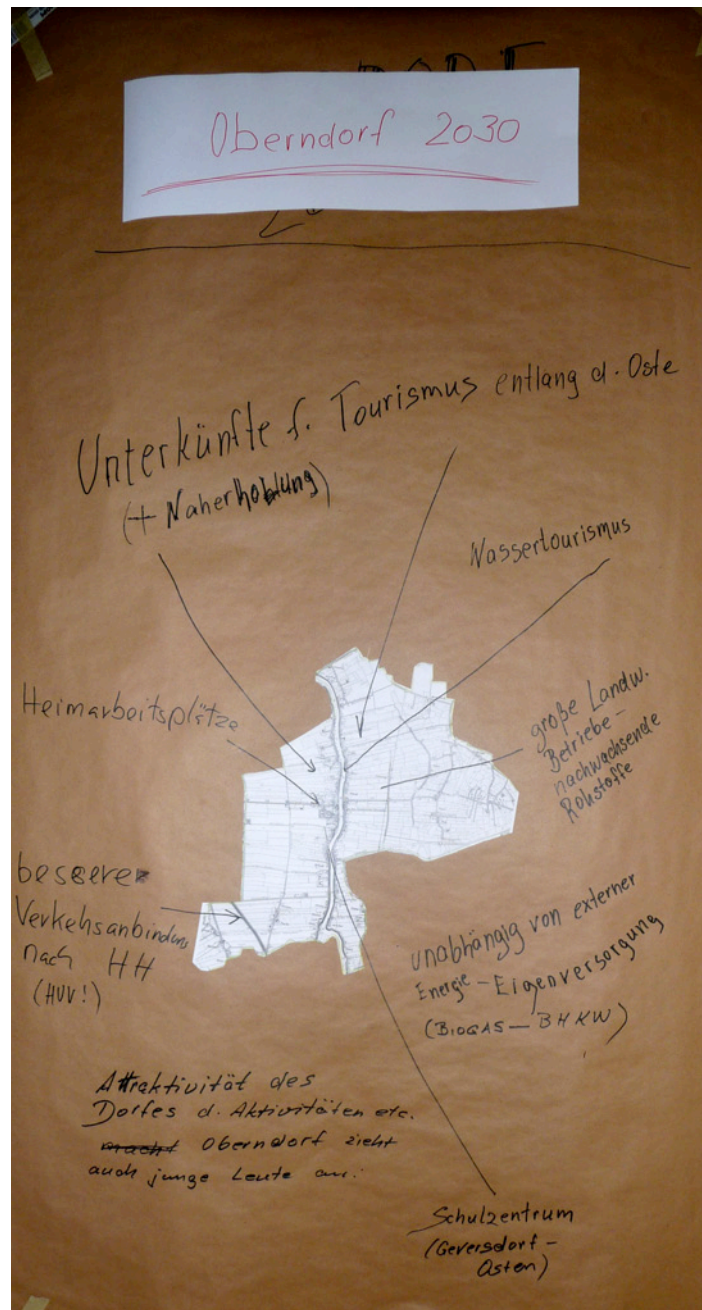 Oberndorf 2030
Unterkünfte f. Tourismus entlang d. Oste
(+ Naherholung)
Wassertourismus
Heimarbeitsplätze
große Landw.
Betriebe –
nachwachsende
Rohstoffe
bessere
Verkehsanbindung
nach HH
(HVV!)
unabhängig von externer
Energie – Eigenversorgung
(BIOGAS – BHKW)
Attraktivität des
Dorfes d. Aktivitäten etc.
macht Oberndorf zieht
auch junge Leute an.
Schulzentrum
(Geversdorf –
Osten)